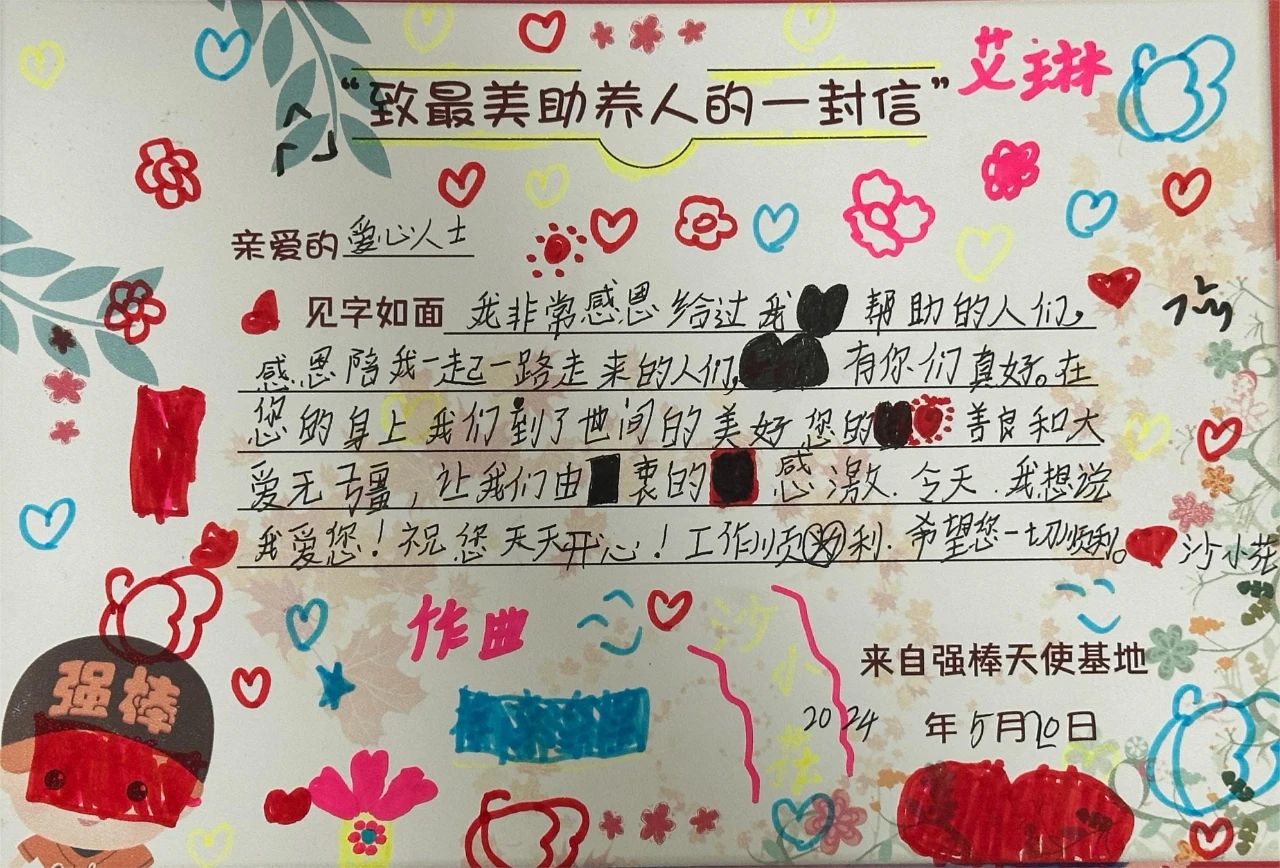 “致最美助养人的一封信”
艾琳
亲爱的爱心人士
见字如面 我非常感恩给过我 帮助的人们，
感恩陪我一起一路走来的人们， 有你们真好。在
您的身上我们到了世间的美好 您的 善良和大
爱无弓疆，让我们由 衷的 感激. 令天 . 我想说
我爱您！祝您天天开心！工作顺 利. 希望您一切顺利。
沙小花
作曲
沙小花
来自强棒天使基地
2024年5月20日
强棒